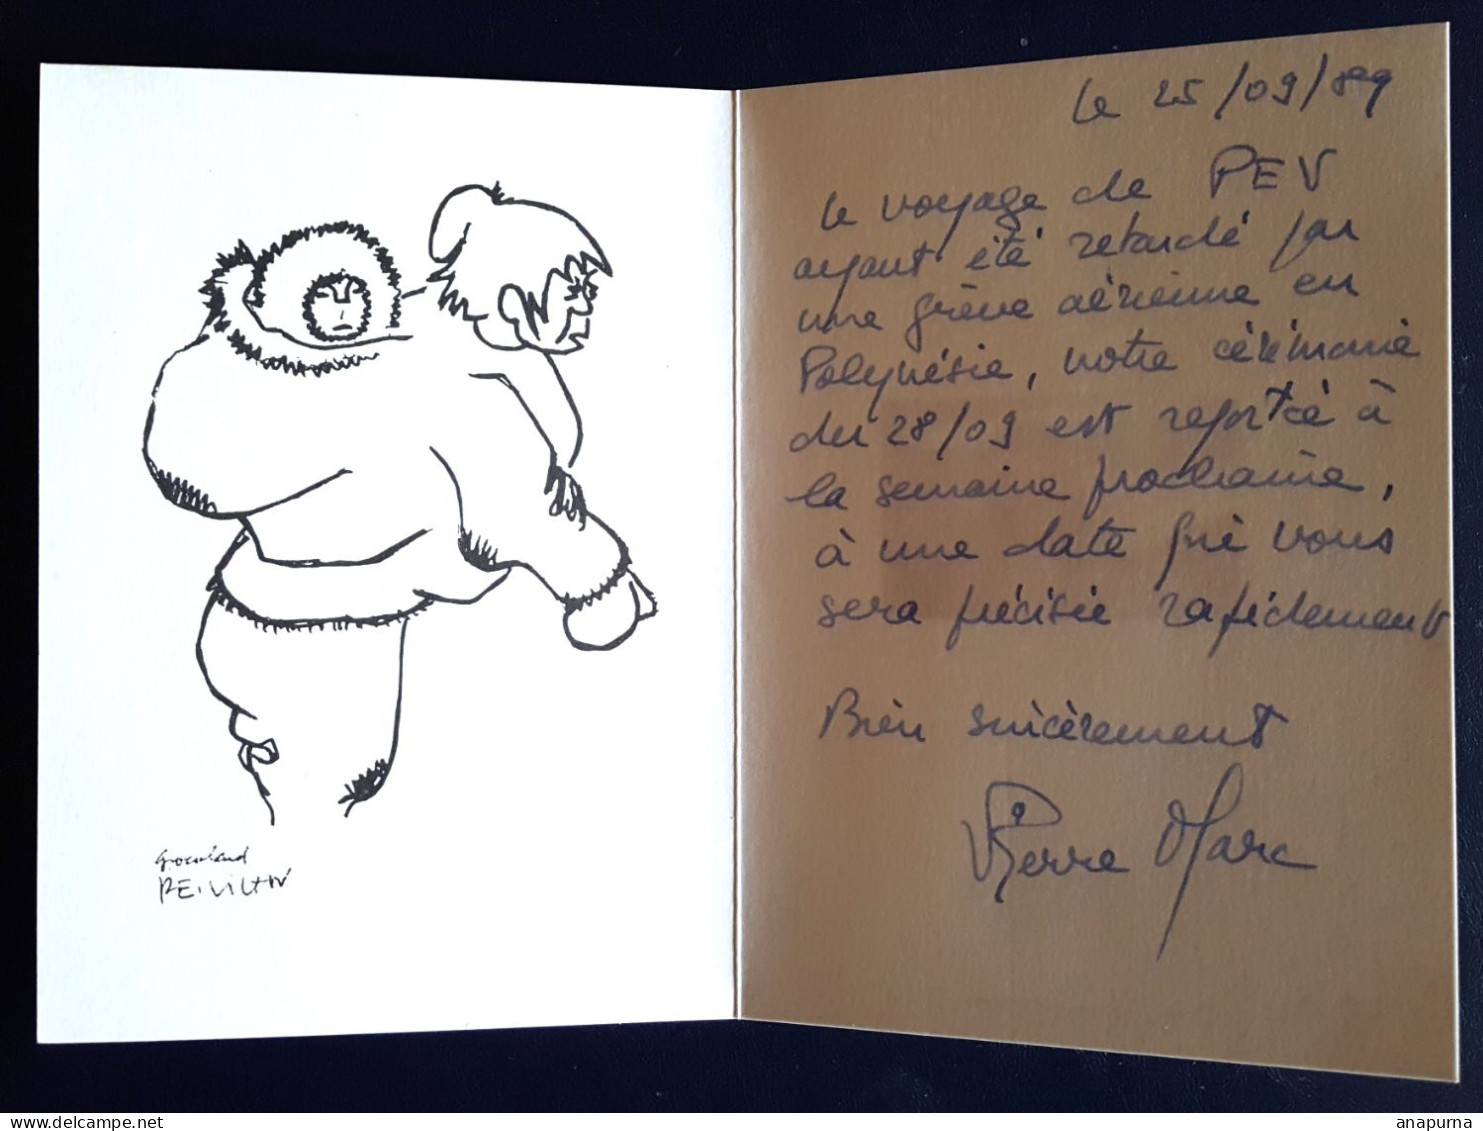 Groenland
P.E. VICTOR
le 25/09/89
le voyage de PEV
ayant été retardé par
une grève aérienne en
Polynésie, notre cérémonie
du 28/09 est reportée à
la semaine prochaine,
à une date qui vous
sera précisée rapidement
Bien sincèrement
Pierre Marc
www.delcampe.net
anapurna